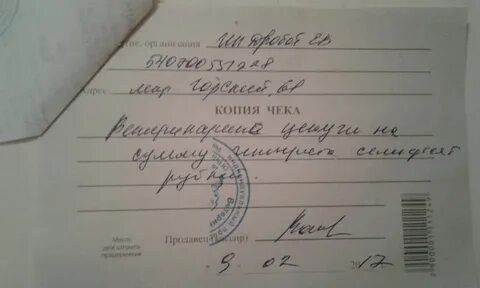 организация ИП Дробот ЕВ
540700531228
Адрес мкр Горский, 61
КОПИЯ ЧЕКА
Ветеринарные услуги на
сумму четыреста семьдесят
рублей
Место
для штампа
предприятия
Продавец (кассир)
9. 02 2017